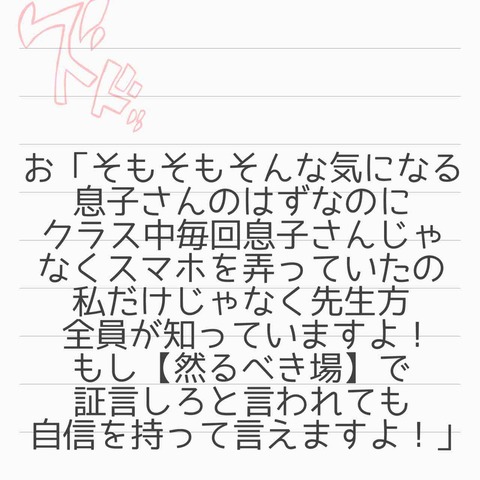 ズドド
お「そもそもそんな気になる
息子さんのはずなのに
クラス中毎回息子さんじゃ
なくスマホを弄っていたの
私だけじゃなく先生方
全員が知っていますよ！
もし【然るべき場】で
証言しろと言われても
自信を持って言えますよ！」